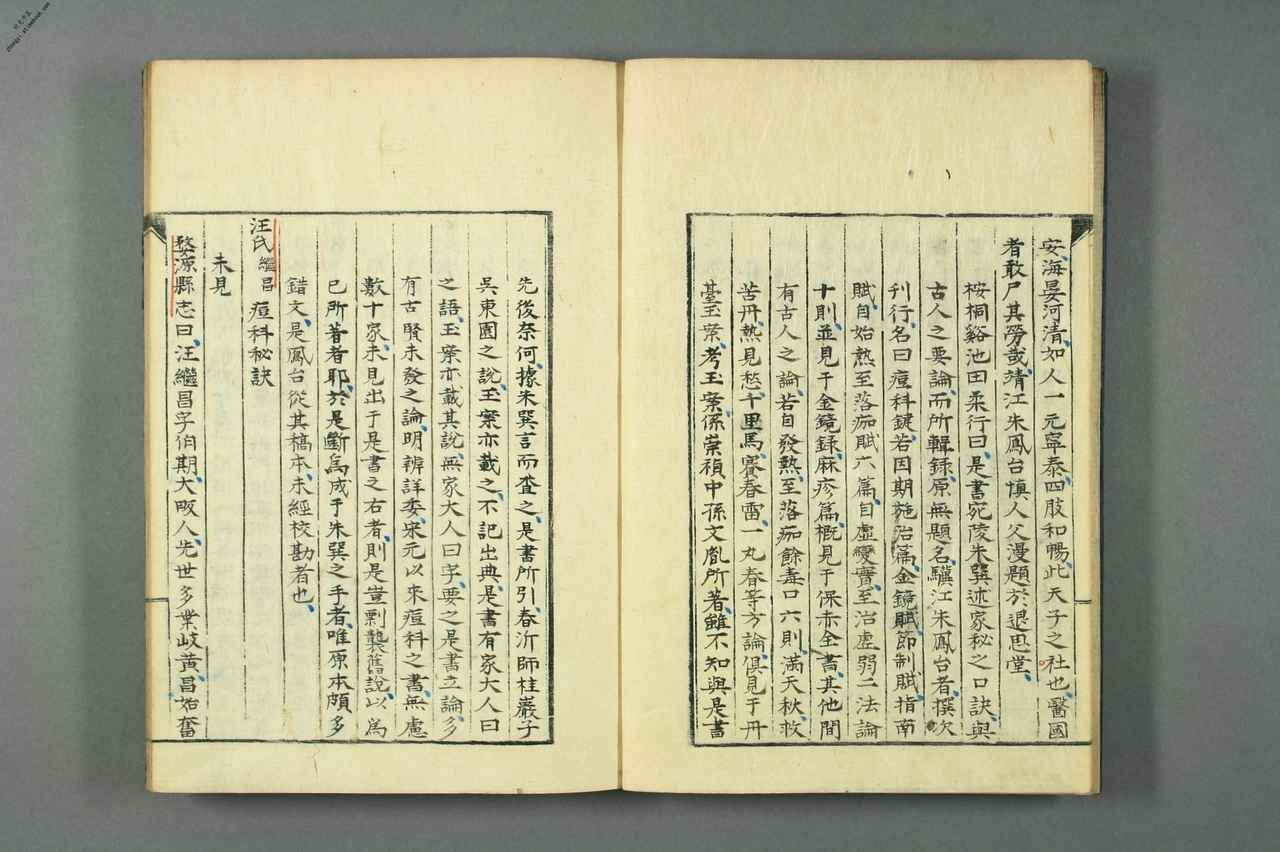 安海晏河清如人一元寧泰四肢和暢此天子之社也醫國
者敢尸其勞哉靖江朱鳳台慎人父漫題於退思堂
桉桐谿池田柔行曰是書宛陵朱巽述家秘之口訣與
古人之要論而所輯錄原無題名驥江朱鳳台者撰次
刊行名曰痘科鍵若因期施治篇金鏡賦節制賦指南
賦自始熱至落痂賦六篇自虛變實至治虛弱二法論
十則並見于金鏡録麻疹篇概見于保赤全書其他間
有古人之論若自發熱至落痂餘毒口六則滿天秋救
苦丹熱見愁千里馬賽春雷一丸春等方論俱見于丹
臺玉案考玉案係崇禎中孫文胤所著雖不知與是書
先後奈何據朱巽言而査之是書所引春沂師桂巖子
吳東園之說玉案亦載之不記出典是書有家大人曰
之語玉案亦載其說無家大人曰字要之是書立論多
有古賢未發之論明辨詳委宋元以來痘科之書無慮
數十家未見出于是書之右者則是豈剽襲舊說以爲
已所著者耶於是斷爲成于朱巽之手者唯原本頗多
錯文是鳳台從其稿本未經校勘者也
汪氏繼昌痘科秘訣
未見
婺源縣志曰汪繼昌字伯期大畈人先世多業岐黃昌始奮